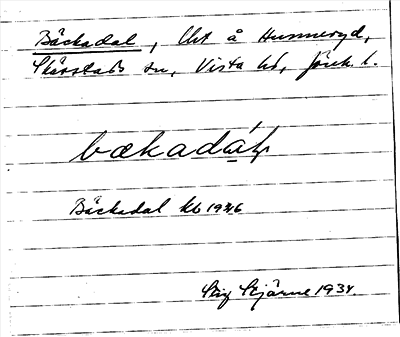 Bäckadal, Utt å Hunneryd,
Skärstads sn, Vista hd, Jönk. l.
bækadáļ
Bäckadal kb 1946
Stig Stjärne 1934.